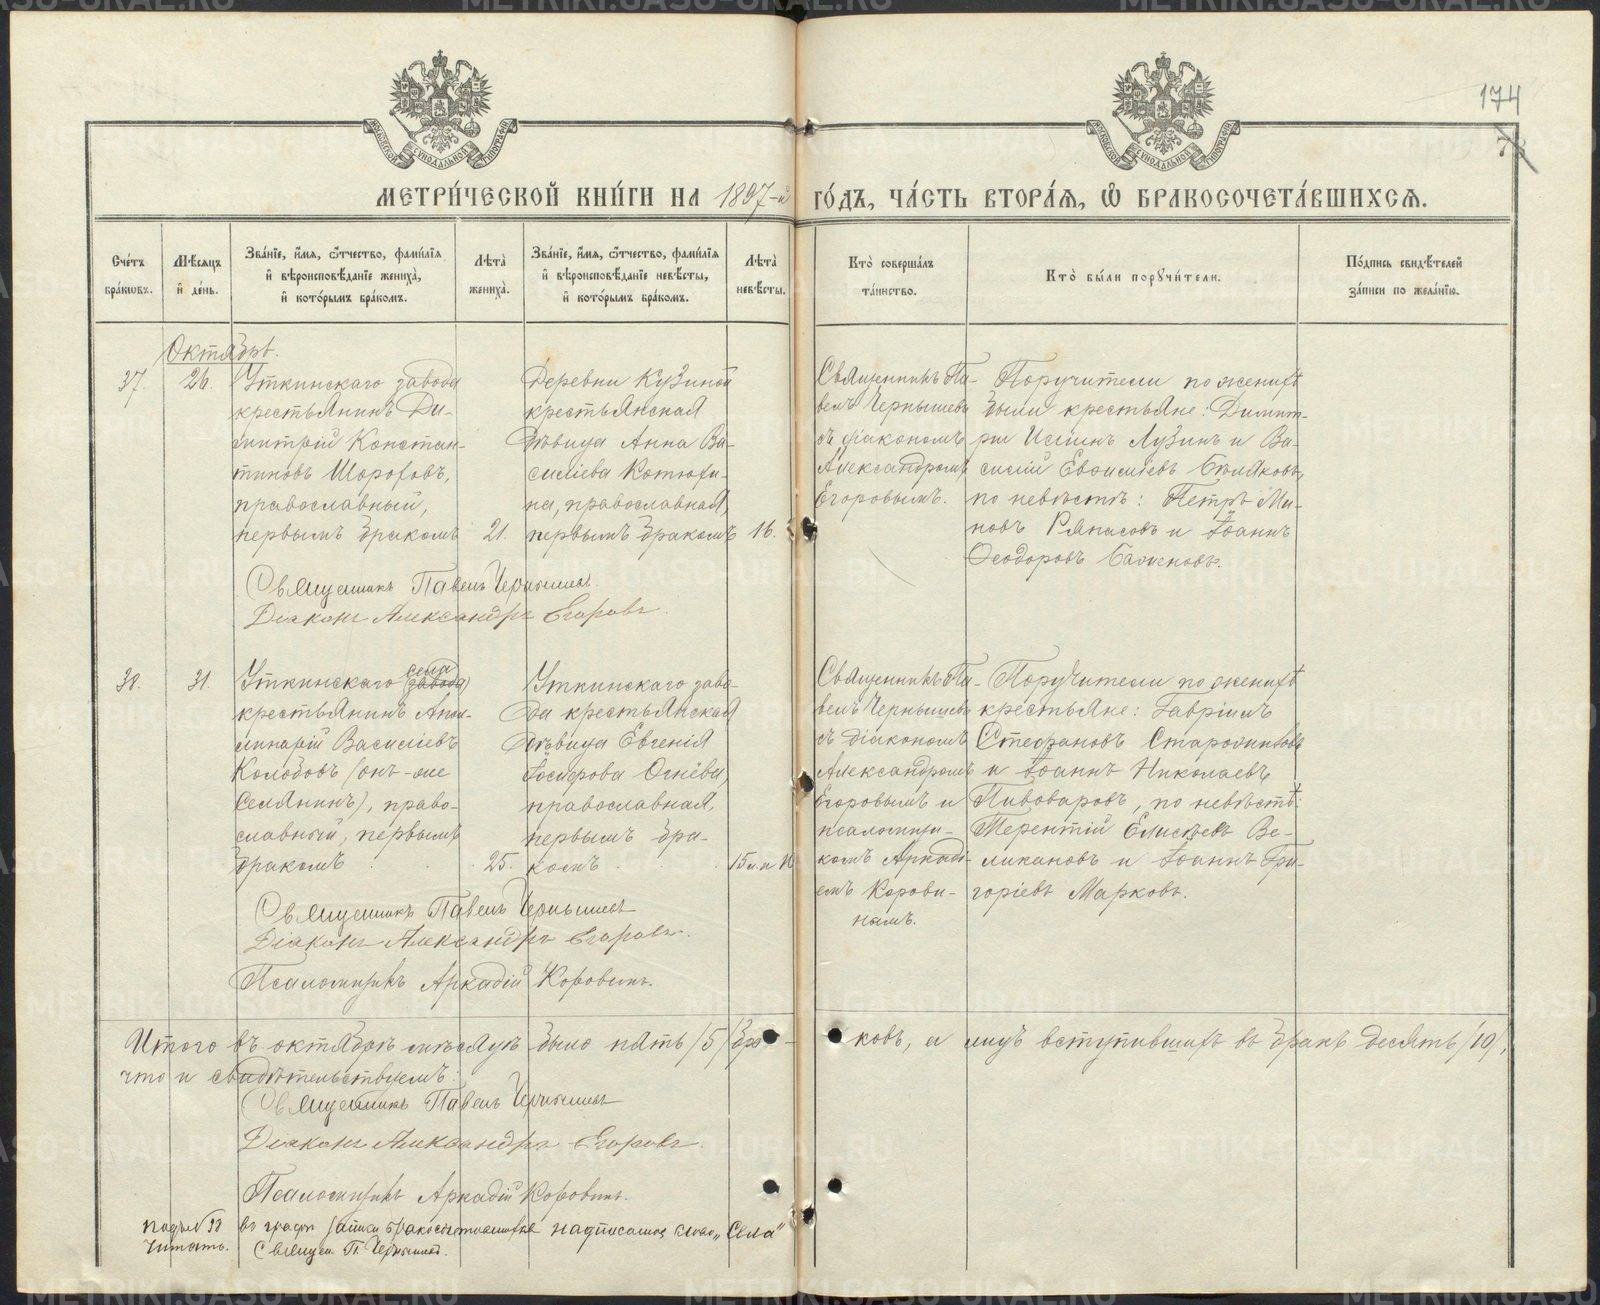 174
МЕТРИ́ЧЕСКОЙ КНИ́ГИ НА 1897-й ГО́ДЪ, ЧА́СТЬ ВТОРА́Я, Ѽ БРАКОСОЧЕТА́ВШИХСЯ.
Сче́тъ бра́кѡвъ.
Мѣ́сяцъ и҆ де́нь.
Зва́нїе, и҆́мя, ѻ҆́тчество, фами́лїя и҆ вѣроисповѣ́данїе жениха̀, и҆ кото́рымъ бра́комъ.
Лѣта̀ жениха̀.
Зва́нїе, и҆́мя, ѻ҆́тчество, фами́лїя и҆ вѣроисповѣ́данїе невѣ́сты, и҆ кото́рымъ бра́комъ.
Лѣта̀ невѣ́сты.
Кто̀ соверша́лъ та́инство.
Кто̀ бы́ли порꙋчи́тели.
По́дпись свидѣ́телей за́писи по жела́нїю.
Октябрь.
37.
26.
Уткинскаго завода
крестьянинъ Ди-
митрій Констан-
тиновъ Шороховъ,
православный,
первымъ бракомъ
21.
Деревни Кузиной
крестьянская
дѣвица Анна Ва-
силіева Котюги-
на, православная,
первымъ бракомъ
16.
Священникъ Па-
велъ Чернышевъ
съ діакономъ
Александромъ
Егоровымъ.
Поручители по женихѣ
были крестьяне: Димит-
рій Лузинъ и Ва-
силій Евфиміевъ Бѣляковъ,
по невѣстѣ: Петръ Ми-
новъ Ряпасовъ и Іоаннъ
Ѳеодоровъ Баженовъ.
Священникъ Павелъ Чернышевъ
Діаконъ Александръ Егоровъ.
38.
31.
села
Уткинскаго (завода)
крестьянинъ Апол-
линарій Василіевъ
Колобовъ (онъ-же
Селянинъ), право-
славный, первымъ
бракомъ
25.
Уткинскаго заво-
да крестьянская
дѣвица Евгенія
Іосифова Огнёва,
православная,
первымъ бра-
комъ
15
Священникъ Па-
велъ Чернышевъ
съ діакономъ
Александромъ
Егоровымъ и
псаломщи-
комъ Аркаді-
емъ Корови-
нымъ.
Поручители по женихѣ
крестьяне: Гавріилъ
Стефановъ
и Іоаннъ Николаевъ
Пивоваровъ, по невѣстѣ:
Терентій Елисѣевъ Ве-
ликановъ и Іоаннъ Гри-
горіевъ Марковъ.
Священникъ Павелъ Чернышевъ
Діаконъ Александръ Егоровъ.
Псаломщикъ Аркадій Коровинъ.
Итого въ октябрѣ мѣсяцѣ было пять /5/ бра-ковъ, а лицъ вступившихъ въ бракъ десять /10/,
что и свидѣтельствуемъ:
Священникъ Павелъ Чернышевъ
Діаконъ Александръ Егоровъ.
Псаломщикъ Аркадій Коровинъ.
подъ № 38 въ графѣ записи бракосочетавшихся надписанное слово „Села"
читать. Священ. П. Чернышевъ.
METRIKI.GASO-URAL.RU